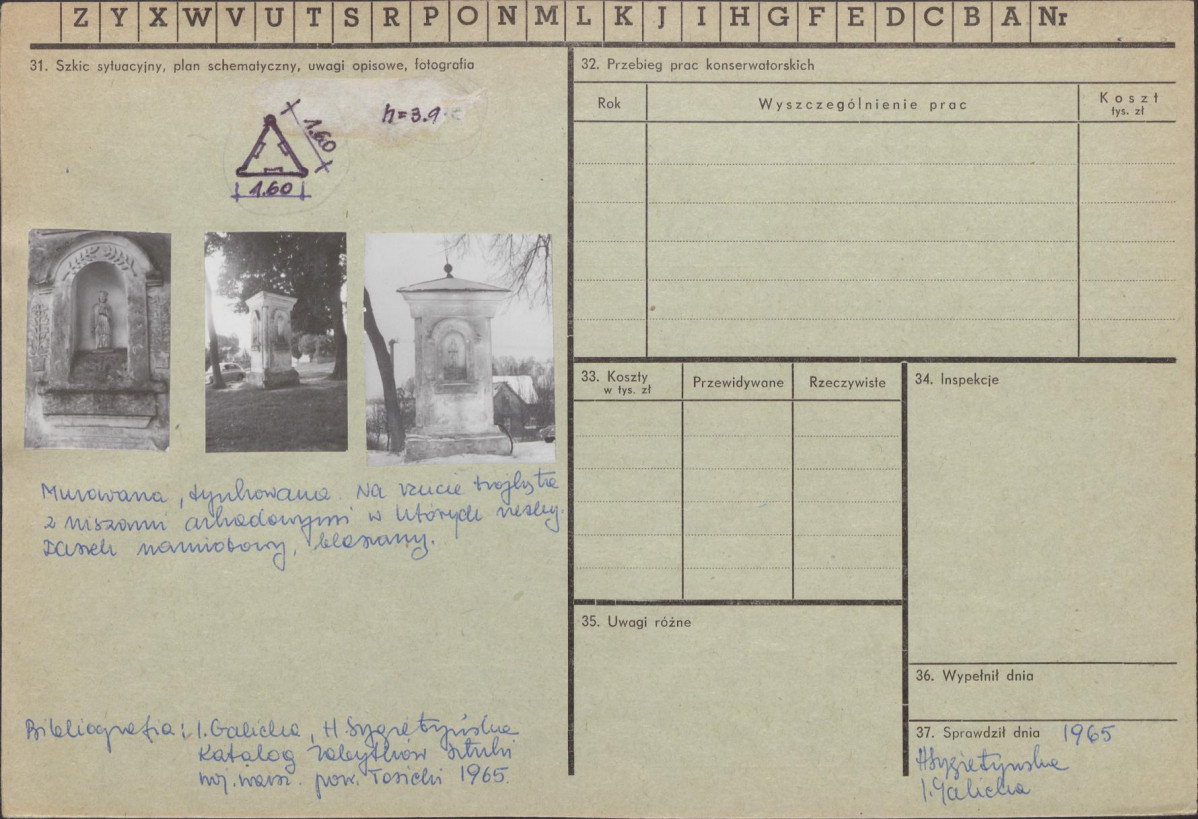 Z Y X W V U T S R P O N M L K J I H G F E D C B A Nr
31. Szkic sytuacyjny, plan schematyczny, uwagi opisowe, fotografia
h=3.9
1.60
1.60
Murowana, tynkowana. Na rzucie trójkąta
z niszami arkadowymi w których rzeźby.
Daszek namiotowy, blaszany.
Bibliografia: I. Galicka, H. Sygietyńska
Katalog Zabytków Sztuki
woj. warsz. pow. Łosicki 1965.
32. Przebieg prac konserwatorskich
Rok Wyszczególnienie prac Koszt
tys. zł
33. Koszty
w tys. zł
Przewidywane Rzeczywiste
34. Inspekcje
35. Uwagi różne
36. Wypełnił dnia
37. Sprawdził dnia 1965
H Sygietyńska
I. Galicka